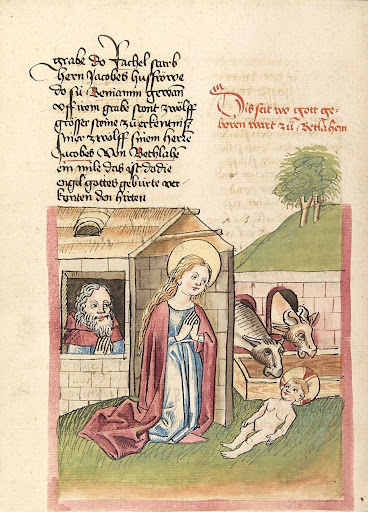 grabe do Rachel starb
hern Jacobes hußfröwe
do sú Beniamin gewan
vff irem grabe stont zwölff
grösser steine zů erkentniß
siner zwölff sinem herre
Jacobes von Bethlahē
ein mile das ist do die
engel gottes gebúrte ver
kúnten den hirten
Dis seit wo gott ge-
boren wart zů Betlahem